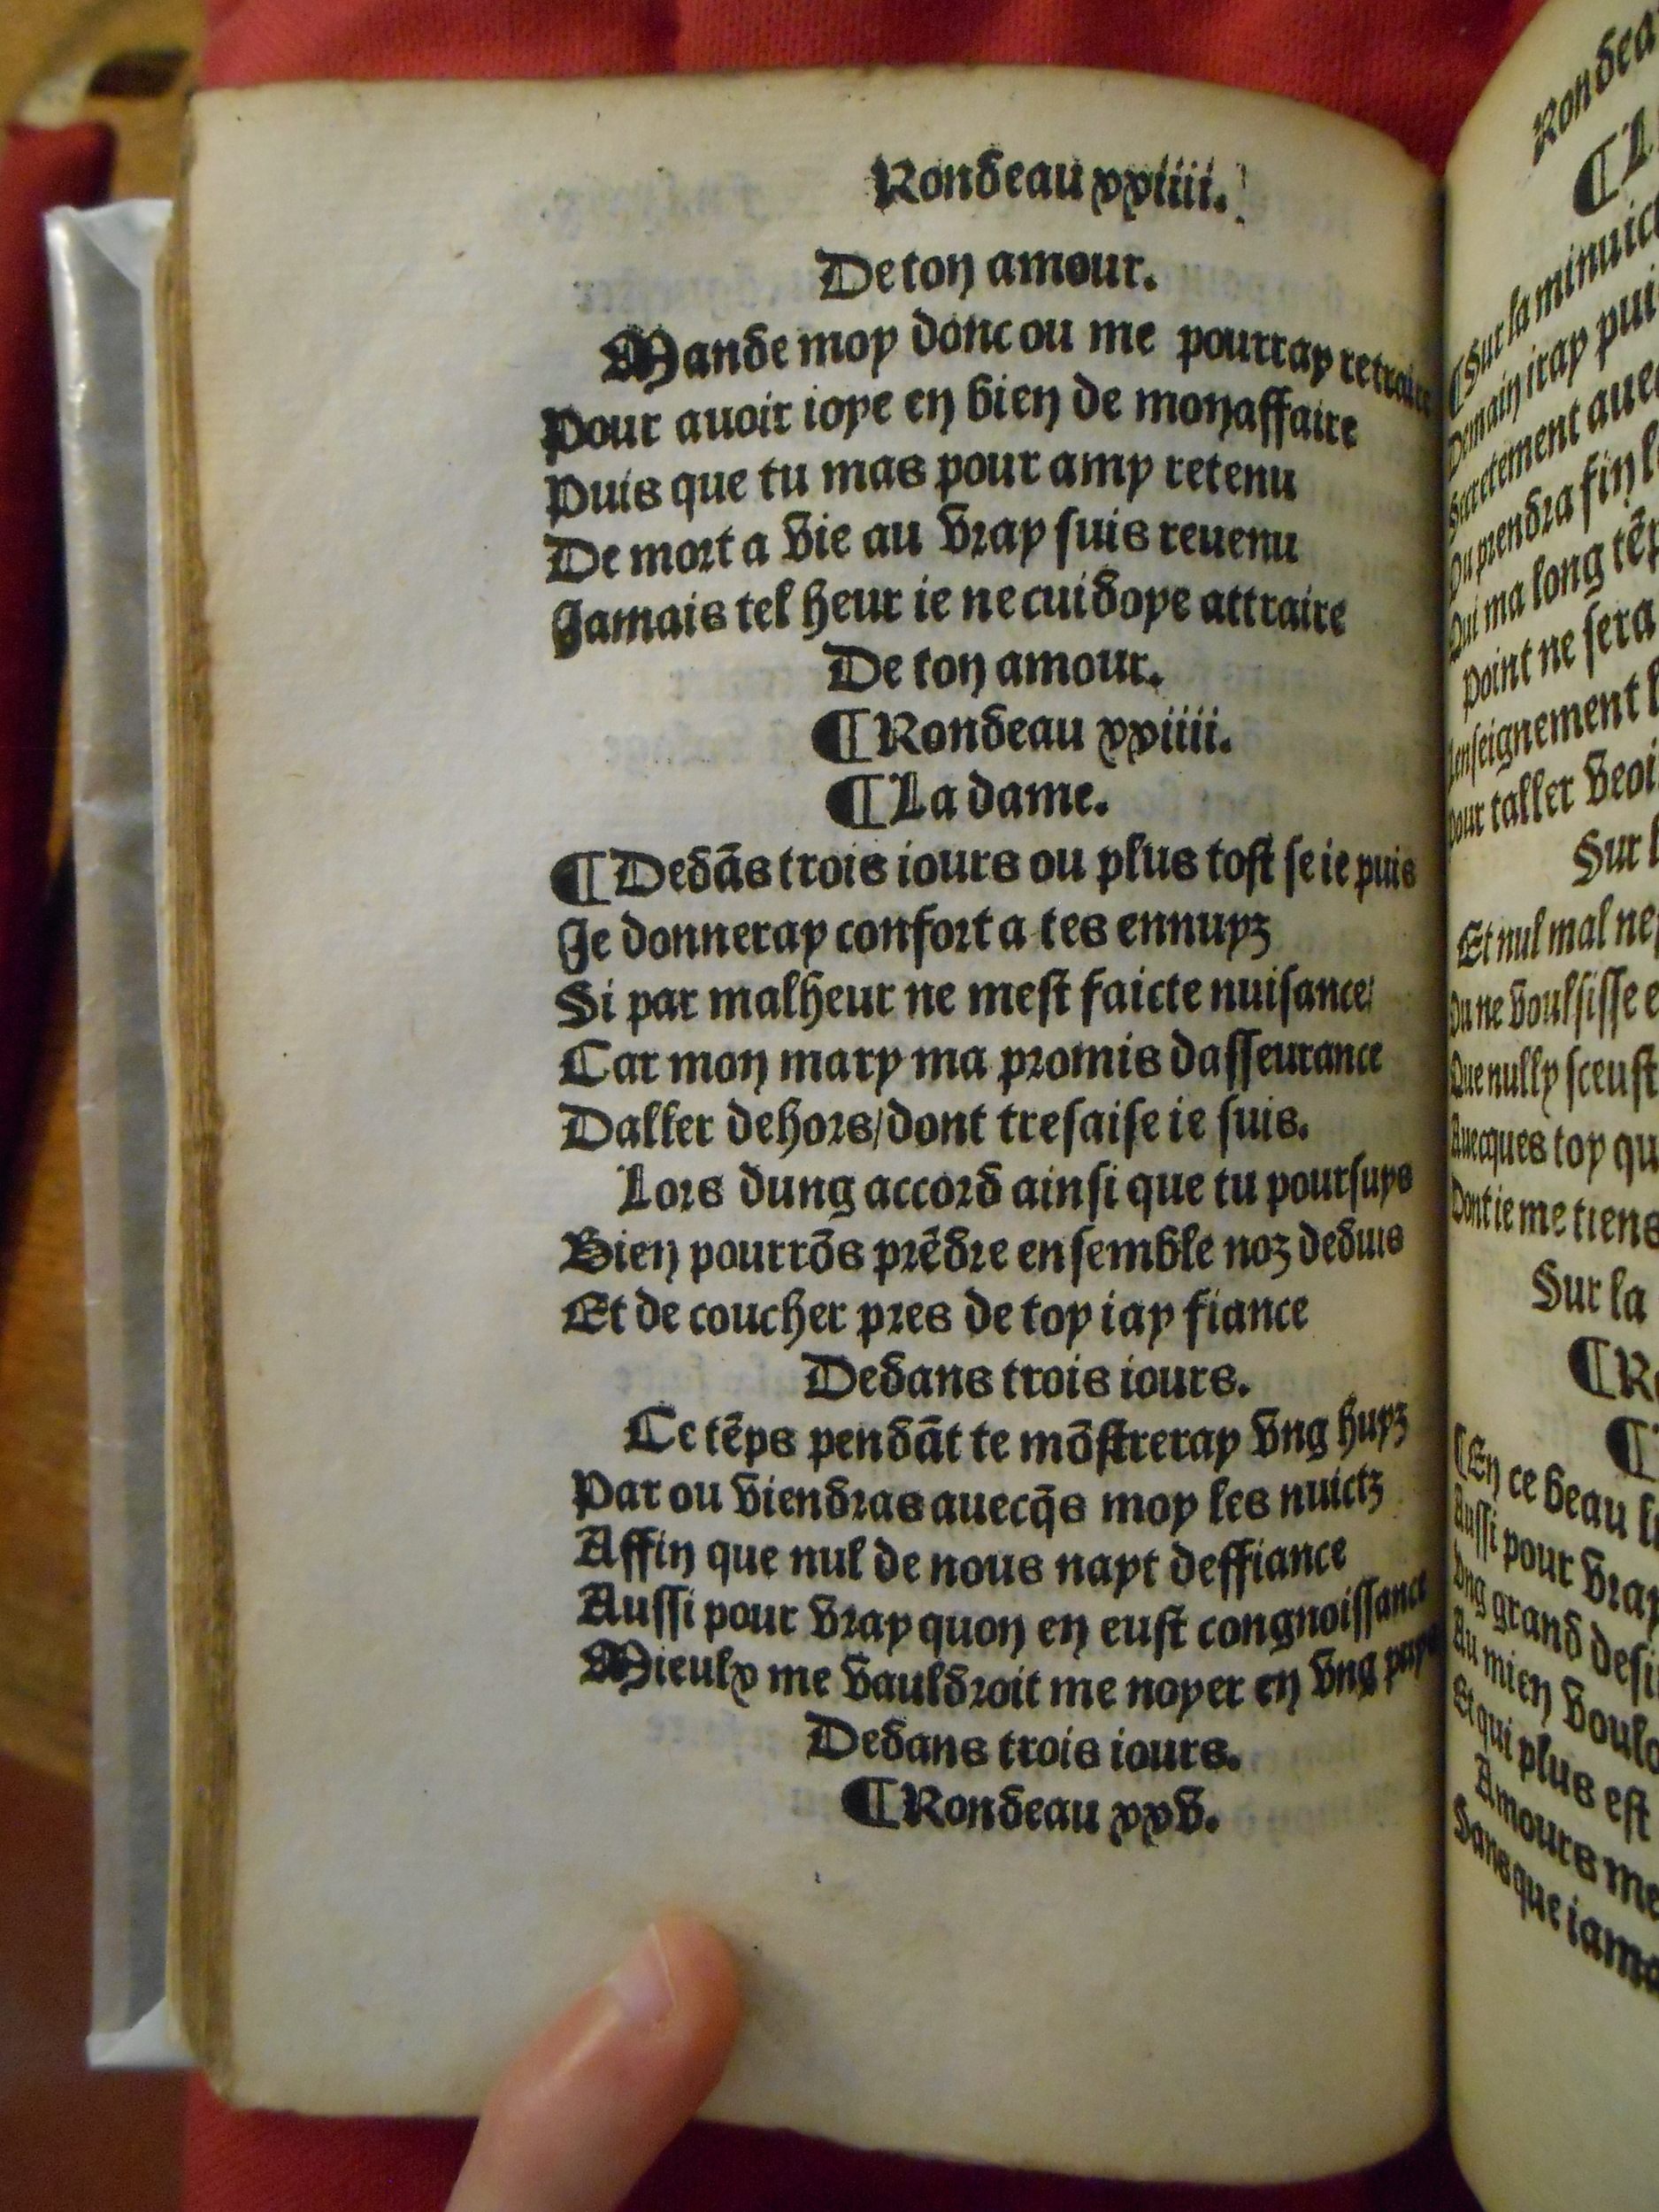 Rondeau xxiiii.
De ton amour.
Mande moy donc ou me pourray retraire
Pour auoir ioye en bien de mon affaire
Puis que tu mas pour amy retenu
De mort a vie au vray suis reuenu
Jamais tel heur ie ne cuidoye attraire
De ton amour.
¶Rondeau xxiiii.
¶La dame.
¶Dedãs trois iours ou plus tost se ie puis
Je donneray confort a tes ennuyz
Si par malheur ne mest faicte nuisance:
Car mon mary ma promis dasseurance
Daller dehors/dont tresaise ie suis.
Lors dung accord ainsi que tu poursuys
Bien pourrõs prẽdre ensemble noz deduis
Et de coucher pres de toy iay fiance
Dedans trois iours.
Ce tẽps pendãt te mõstreray vng huyz
Par ou viendras auecq̃s moy les nuictz
Affin que nul de nous nayt deffiance
Aussi pour vray quon en eust congnoissance
Mieulx me vauldroit me noyer en vng
Dedans trois iours.
¶Rondeau xxv.
Sur la minuict
Demain iray
Secretement
Ou prendra fin
Qui ma long
Point ne sera
Lenseignement
Pour taller
Sur
Et nul mal
Ou ne voulsisse
Que nully sceust
Auecques toy
Dont ie me tiens
Sur la
¶En ce beau
Aussi pour vray
Vng grand
Au mien
Et qui plus est
Amours me
Sans que